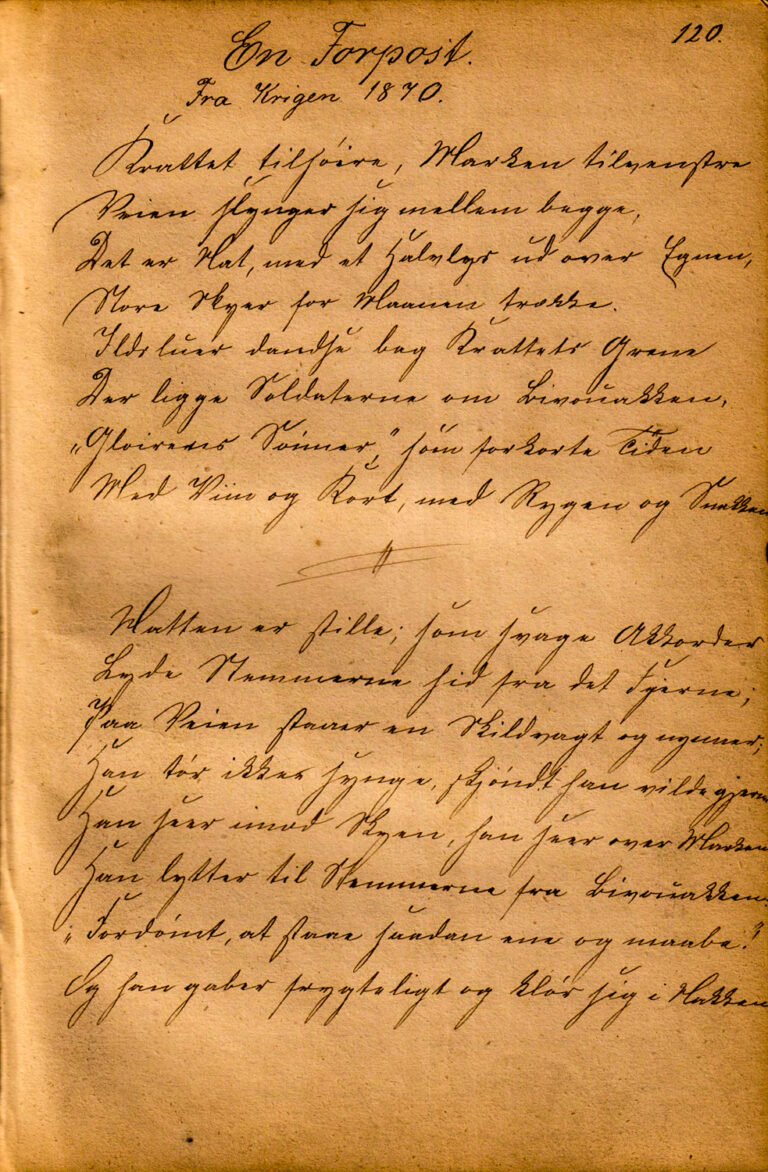 120.
En Forpost.
Fra Krigen 1870.
Krattet tilhøire, Marken tilvenstre
Veien slynger sig mellem begge,
Det er Nat, med et Halvlys ud over Egnen,
Store Skyer for Maanen trække.
Ildsluer dandse bag Krattets Grene
Der ligge Soldaterne om Bivouakken,
„Gloirens Sønner," som forkorte Tiden
Med Viin og Kort, med Rygen og Snakken
Natten er stille; som svage Akkorder
Lyde Stemmerne hid fra det Fjerne;
Paa Veien staaer en Skildvagt og nynner;
Han tør ikke synge, skjøndt han vilde gjerne
Han seer imod Skyen, han seer over Marken
Han lytter til Stemmerne fra Bivouakken.
„Fordømt, at staae saadan ene og maabe!"
Og han gaber frygteligt og klør sig i Nakken